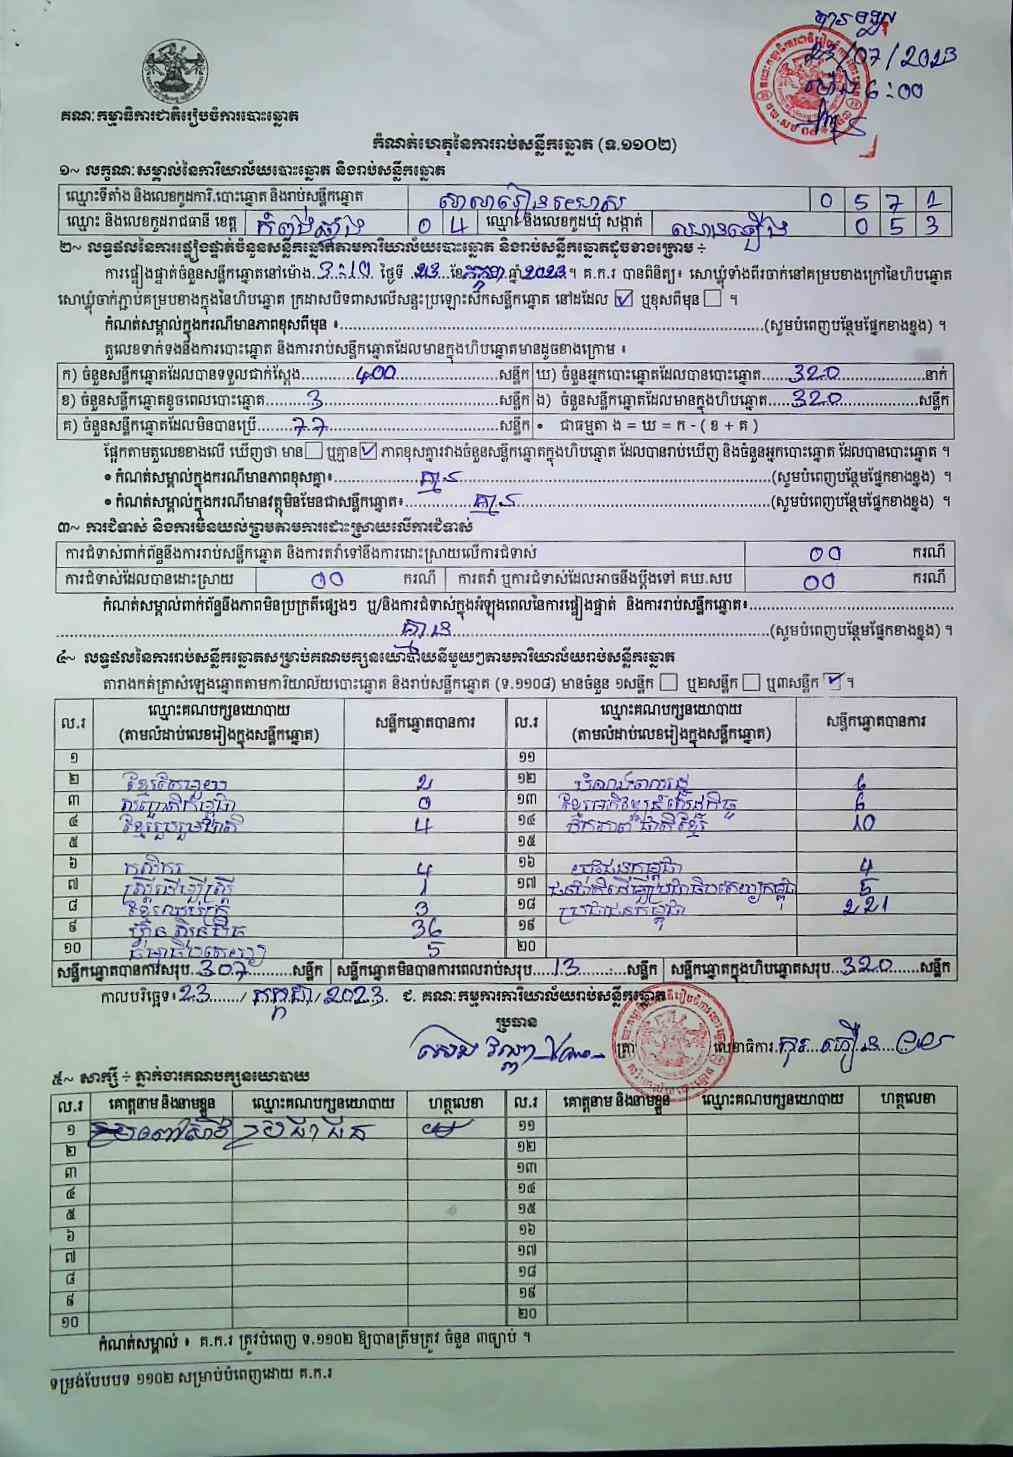 23/07/2023
6:00
គណៈកម្មាធិការជាតិរៀបចំការបោះឆ្នោត
កំណត់ហេតុនៃការរាប់សន្លឹកឆ្នោត (ទ.១១០២)
១~ លក្ខណៈសម្គាល់នៃការិយាល័យបោះឆ្នោត និងរាប់សន្លឹកឆ្នោត
ឈ្មោះទីតាំង និងលេខកូដការិ.បោះឆ្នោត និងរាប់សន្លឹកឆ្នោត សាលារៀន 0 5 7 1
ឈ្មោះ និងលេខកូដរាជធានី ខេត្ត កំពង់ឆ្នាំង 0 4 ឈ្មោះ និងលេខកូដឃុំ សង្កាត់ 0 5 3
២~ លទ្ធផលនៃការផ្ទៀងផ្ទាត់ចំនួនសន្លឹកឆ្នោតតាមការិយាល័យបោះឆ្នោត និងរាប់សន្លឹកឆ្នោតដូចខាងក្រោម ÷
ការផ្ទៀងផ្ទាត់ចំនួនសន្លឹកឆ្នោតនៅម៉ោង 3:10 ថ្ងៃទី 23 ខែ កក្កដា ឆ្នាំ 2023 ។ គ.ក.រ បានពិនិត្យ៖ សោឃ្លុំទាំងពីរចាក់នៅគម្របខាងក្រៅនៃហិបឆ្នោត
សោឃ្លុំចាក់ភ្ជាប់គម្របខាងក្នុងនៃហិបឆ្នោត ក្រដាសបិទពាសលើសន្ទះប្រឡោះសឹកសន្លឹកឆ្នោត នៅដដែល ☑ ឬខុសពីមុន ☐ ។
កំណត់សម្គាល់ក្នុងករណីមានភាពខុសពីមុន ៖ (សូមបំពេញបន្ថែមផ្នែកខាងខ្នង) ។
តួលេខទាក់ទងនឹងការបោះឆ្នោត និងការរាប់សន្លឹកឆ្នោតដែលមានក្នុងហិបឆ្នោតមានដូចខាងក្រោម ៖
ក) ចំនួនសន្លឹកឆ្នោតដែលបានទទួលជាក់ស្តែង 400 សន្លឹក ឃ) ចំនួនអ្នកបោះឆ្នោតដែលបានបោះឆ្នោត 320 នាក់
ខ) ចំនួនសន្លឹកឆ្នោតខូចពេលបោះឆ្នោត 3 សន្លឹក ង) ចំនួនសន្លឹកឆ្នោតដែលមានក្នុងហិបឆ្នោត 320 សន្លឹក
គ) ចំនួនសន្លឹកឆ្នោតដែលមិនបានប្រើ 77 សន្លឹក • ជាធម្មតា ង = ឃ = ក - ( ខ + គ )
ផ្អែកតាមតួលេខខាងលើ ឃើញថា មាន ☐ ឬគ្មាន ☑ ភាពខុសគ្នារវាងចំនួនសន្លឹកឆ្នោតក្នុងហិបឆ្នោត ដែលបានរាប់ឃើញ និងចំនួនអ្នកបោះឆ្នោត ដែលបានបោះឆ្នោត ។
• កំណត់សម្គាល់ក្នុងករណីមានភាពខុសគ្នា៖ គ្មាន (សូមបំពេញបន្ថែមផ្នែកខាងខ្នង) ។
• កំណត់សម្គាល់ក្នុងករណីមានវត្ថុមិនមែនជាសន្លឹកឆ្នោត៖ គ្មាន (សូមបំពេញបន្ថែមផ្នែកខាងខ្នង) ។
៣~ ការជំទាស់ និងការមិនយល់ព្រមតាមការដោះស្រាយលើការជំទាស់
ការជំទាស់ពាក់ព័ន្ធនឹងការរាប់សន្លឹកឆ្នោត និងការតវ៉ាទៅនឹងការដោះស្រាយលើការជំទាស់ 00 ករណី
ការជំទាស់ដែលបានដោះស្រាយ 00 ករណី ការតវ៉ា ឬការជំទាស់ដែលអាចនឹងប្តឹងទៅ គឃ.សប 00 ករណី
កំណត់សម្គាល់ពាក់ព័ន្ធនឹងភាពមិនប្រក្រតីផ្សេងៗ ឬ/និងការជំទាស់ក្នុងអំឡុងពេលនៃការផ្ទៀងផ្ទាត់ និងការរាប់សន្លឹកឆ្នោត៖
គ្មាន (សូមបំពេញបន្ថែមផ្នែកខាងខ្នង) ។
៤~ លទ្ធផលនៃការរាប់សន្លឹកឆ្នោតសម្រាប់គណបក្សនយោបាយនីមួយៗតាមការិយាល័យរាប់សន្លឹកឆ្នោត
តារាងកត់ត្រាសំឡេងឆ្នោតតាមការិយាល័យបោះឆ្នោត និងរាប់សន្លឹកឆ្នោត (ទ.១១០៨) មានចំនួន ១សន្លឹក ☐ ឬ២សន្លឹក ☐ ឬ៣សន្លឹក ☑ ។
ល.រ ឈ្មោះគណបក្សនយោបាយ (តាមលំដាប់លេខរៀងក្នុងសន្លឹកឆ្នោត) សន្លឹកឆ្នោតបានការ ល.រ ឈ្មោះគណបក្សនយោបាយ (តាមលំដាប់លេខរៀងក្នុងសន្លឹកឆ្នោត) សន្លឹកឆ្នោតបានការ
១ ១១
២ ខ្មែរតែមួយ 2 ១២ 6
៣ 0 ១៣ ខ្មែរអភិវឌ្ឍន៍សេដ្ឋកិច្ច 6
៤ ខ្មែររួបរួមជាតិ 4 ១៤ ឯកភាពជាតិខ្មែរ 10
៥ ១៥
៦ កសិករ 4 ១៦ យុវជនកម្ពុជា 4
៧ ស្ត្រីដើម្បីស្ត្រី 1 ១៧ 5
៨ ខ្មែរឈប់ក្រ 3 ១៨ ប្រជាជនកម្ពុជា 221
៩ ហ្វ៊ុនស៊ិនប៉ិច 36 ១៩
១០ ធម្មាធិបតេយ្យ 5 ២០
សន្លឹកឆ្នោតបានការសរុប 307 សន្លឹក សន្លឹកឆ្នោតមិនបានការពេលរាប់សរុប 13 សន្លឹក សន្លឹកឆ្នោតក្នុងហិបឆ្នោតសរុប 320 សន្លឹក
កាលបរិច្ឆេទ៖ 23 / កក្កដា / 2023. ជ. គណៈកម្មការការិយាល័យរាប់សន្លឹកឆ្នោត
ប្រធាន
ត្រា លេខាធិការ
៥~ សាក្សី ÷ ភ្នាក់ងារគណបក្សនយោបាយ
ល.រ គោត្តនាម និងនាមខ្លួន ឈ្មោះគណបក្សនយោបាយ ហត្ថលេខា ល.រ គោត្តនាម និងនាមខ្លួន ឈ្មោះគណបក្សនយោបាយ ហត្ថលេខា
១ ១១
២ ១២
៣ ១៣
៤ ១៤
៥ ១៥
៦ ១៦
៧ ១៧
៨ ១៨
៩ ១៩
១០ ២០
កំណត់សម្គាល់ ៖ គ.ក.រ ត្រូវបំពេញ ទ.១១០២ ឱ្យបានត្រឹមត្រូវ ចំនួន ៣ច្បាប់ ។
ទម្រង់បែបបទ ១១០២ សម្រាប់បំពេញដោយ គ.ក.រ